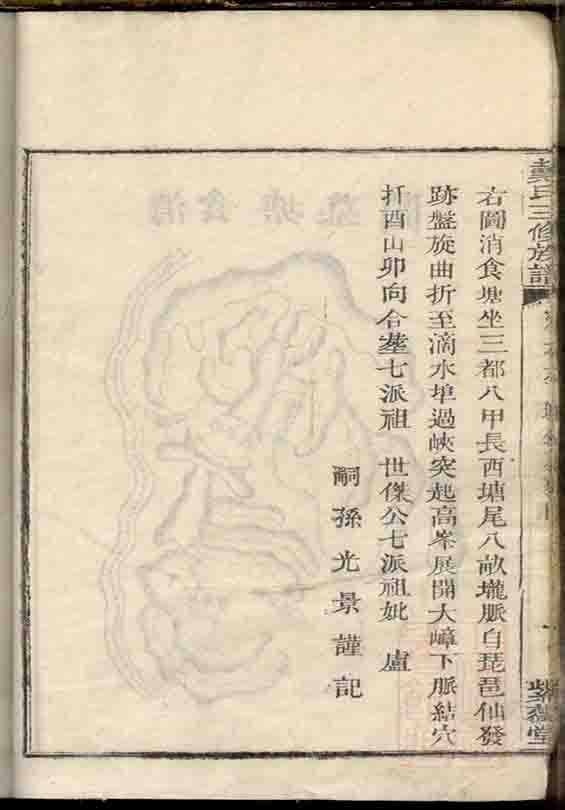 戴氏三修族譜
紫微堂
右圖消食塘坐三都八甲長西塘尾八畝壠脈自琵琶仙發
跡盤旋曲折至滴水埠過峽突起高峯展開大嶂下脈結穴
扦酉山卯向合墓七派祖 世傑公七派祖妣 盧
嗣孫光景謹記